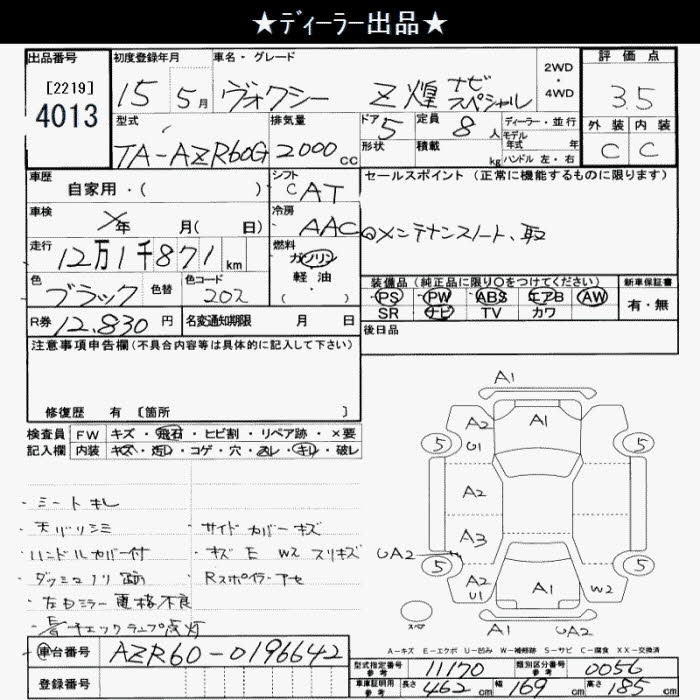 ★ディーラー出品★
出品番号
[2219]
4013
初度登録年月
15 5月
車名・グレード
ヴォクシー Z 煌 ナビスペシャル
2WD
・
4WD
評価点
3.5
外装 内装
C C
型式
TA-AZR60G
排気量
2000cc
ドア
5
形状
定員
8人
積載
kg
ディーラー・並行
モデル
年式 年
ハンドル 左・右
車歴
自家用・( )
シフト
CAT
セールスポイント (正常に機能するものに限ります)
◎メンテナンスノート、取
車検
年 月( 日)
冷房
AAC
走行
12万1千871km
燃料
ガソリン
軽油
( ・ )
色
ブラック
色替
色コード
202
装備品 (純正品に限り○をつけてください)
PS PW ABS エアB AW
SR ナビ TV カワ
新車保証書
有・無
R券
12,830円
名変通知期限 月 日
後日品
注意事項申告欄(不具合内容等は具体的に記入して下さい)
修復歴 有 〔箇所 〕
検査員
記入欄
FW キズ・飛石・ヒビ割・リペア跡・×要
内装 キズ・汚レ・コゲ・穴・スレ・キレ・破レ
・シートキレ
・天バリシミ
・ハンドルカバー付
・ダッシュノリ跡
・左右ミラー電格不良
・チェックランプ点灯
・サイドカバーキズ
・キズ E W2 スリキズ
・Rスポイラーアセ
A1
A2
U1
A1
5
5
A2
A3
UA2
5
5
A2
U1
A1
W2
A1
UA2
スペア
A-キズ E-エクボ U-凹み W-補修跡 S-サビ C-腐食 XX-交換済
車台番号
AZR60-0196642
登録番号
型式指定番号
参考
11170
類別区分番号
参考
0056
車庫証明用
参考
長さ 462cm 幅 169cm 高さ 185cm